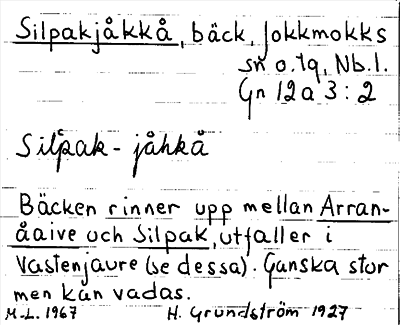 Silpakjåkkå, bäck, Jokkmokks
sn o. tg, Nb. l.
Gn 12 a 3 : 2
Sil̄pak - jåhkå
Bäcken rinner upp mellan Arran-
åaive och Silpak, utfaller i
Vastenjaure (se dessa). Ganska stor
men kan vadas.
M.-L. 1967 H. Grundström 1927